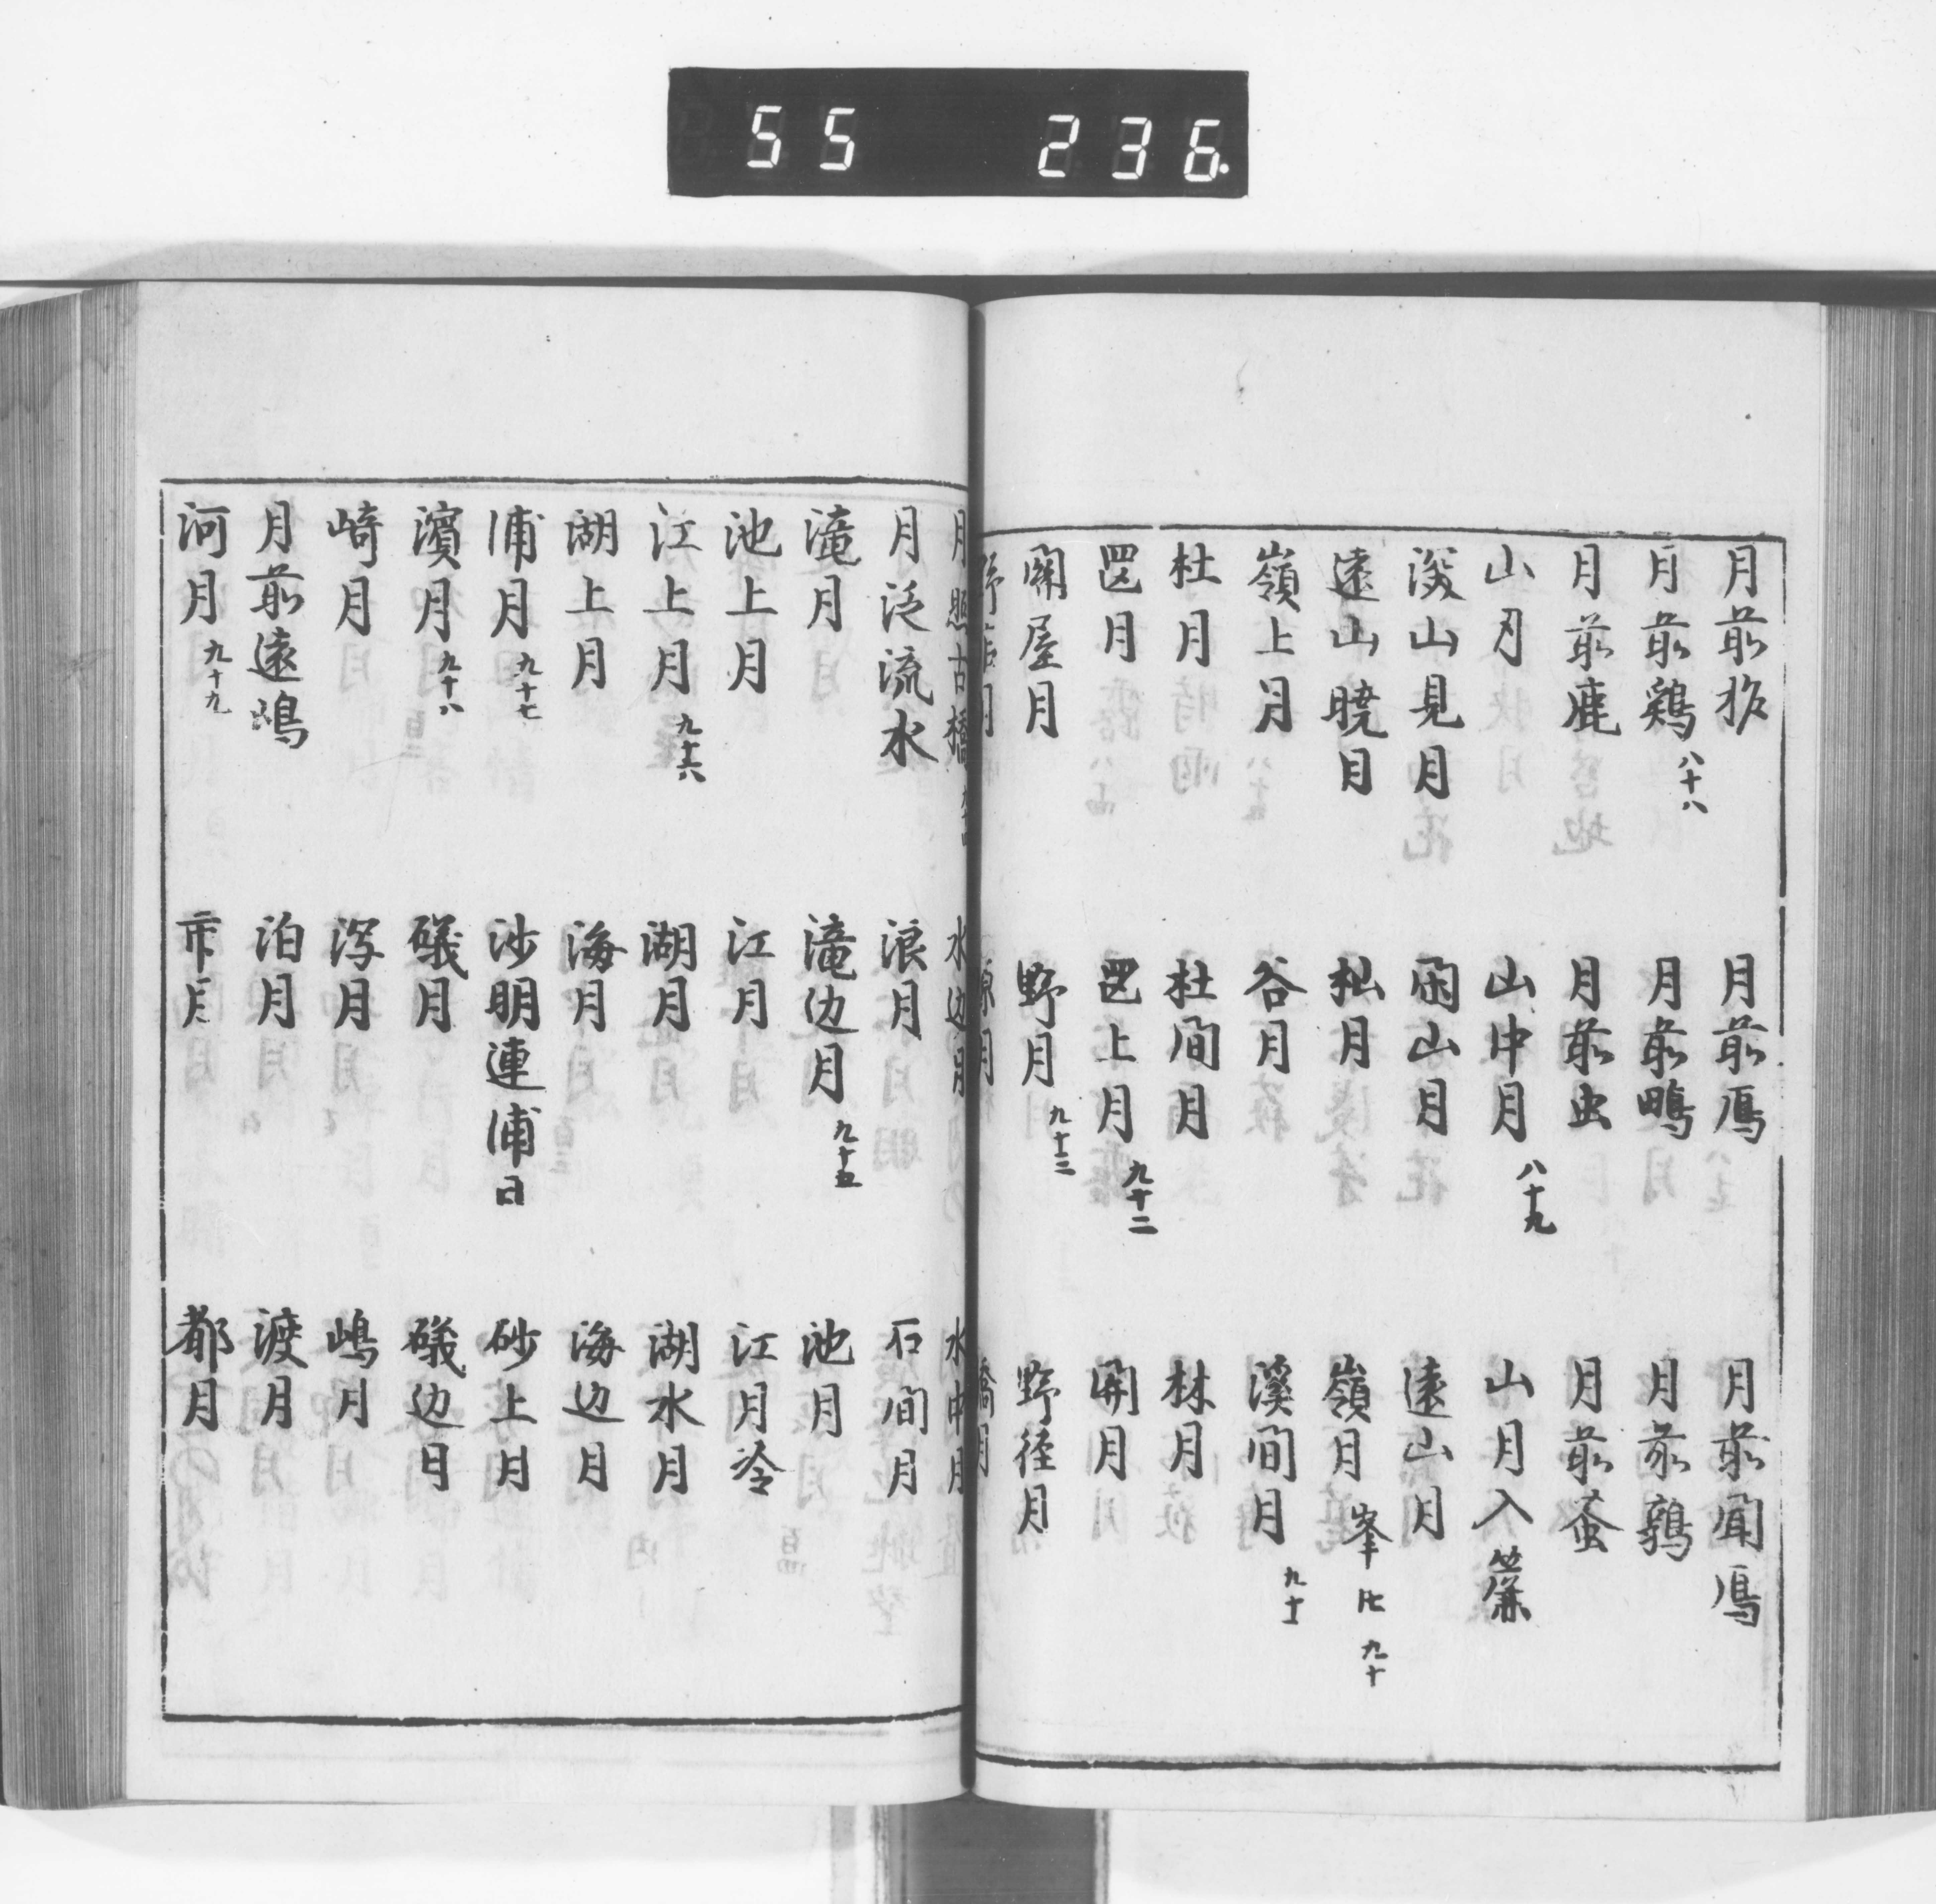 55 236
月前荻 月前鴈 月前聞鴈
月前鶏 八十八 月前鴫 月前鶉
月前鹿 月前虫 月前蚕
山月 山中月 八十九 山月入簾
深山見月 閑山月 遠山月
遠山暁月 杣月 嶺月 峯比 九十
嶺上月 谷月 溪間月 九十一
杜月 杜間月 林月
罡月 罡上月 九十二 関月
関屋月 野月 九十三 野径月
野店月 原月 橋月
月照古橋 九十四 水辺月 水中月
月泛流水 浪月 石間月
滝月 滝辺月 九十五 池月
池上月 江月 江月冷
江上月 九十六 湖月 湖水月
湖上月 海月 海辺月
浦月 九十七 沙明連浦月 砂上月
濱月 九十八 礒月 礒辺月
崎月 浮月 嶋月
月前遠嶋 泊月 渡月
河月 九十九 市月 都月